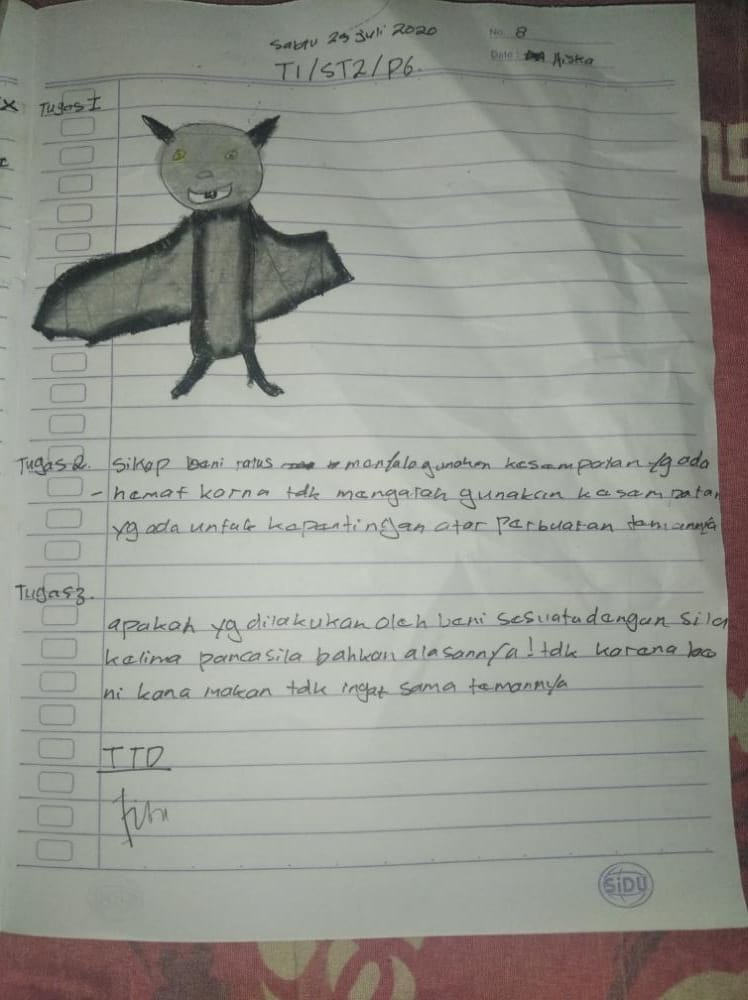 Sabtu 25 Juli 2020
No. 8
Date: Aiska
T1/ST2/P6.
Tugas I
Tugas 2. Sikap beni ratus manfalagunahan kesampatan yg ada
- hemat korna tdk mangarah gunakan kasampatan
yg ada untuk kapantingan atar perbuatan temannya
Tugas 3.
apakah yg dilakukan oleh beni sesuatu dengan sila
kelima pancasila bahkan alasannya! tdk karena be
ni kana makan tdk ingat sama temannya
TTD
SiDU